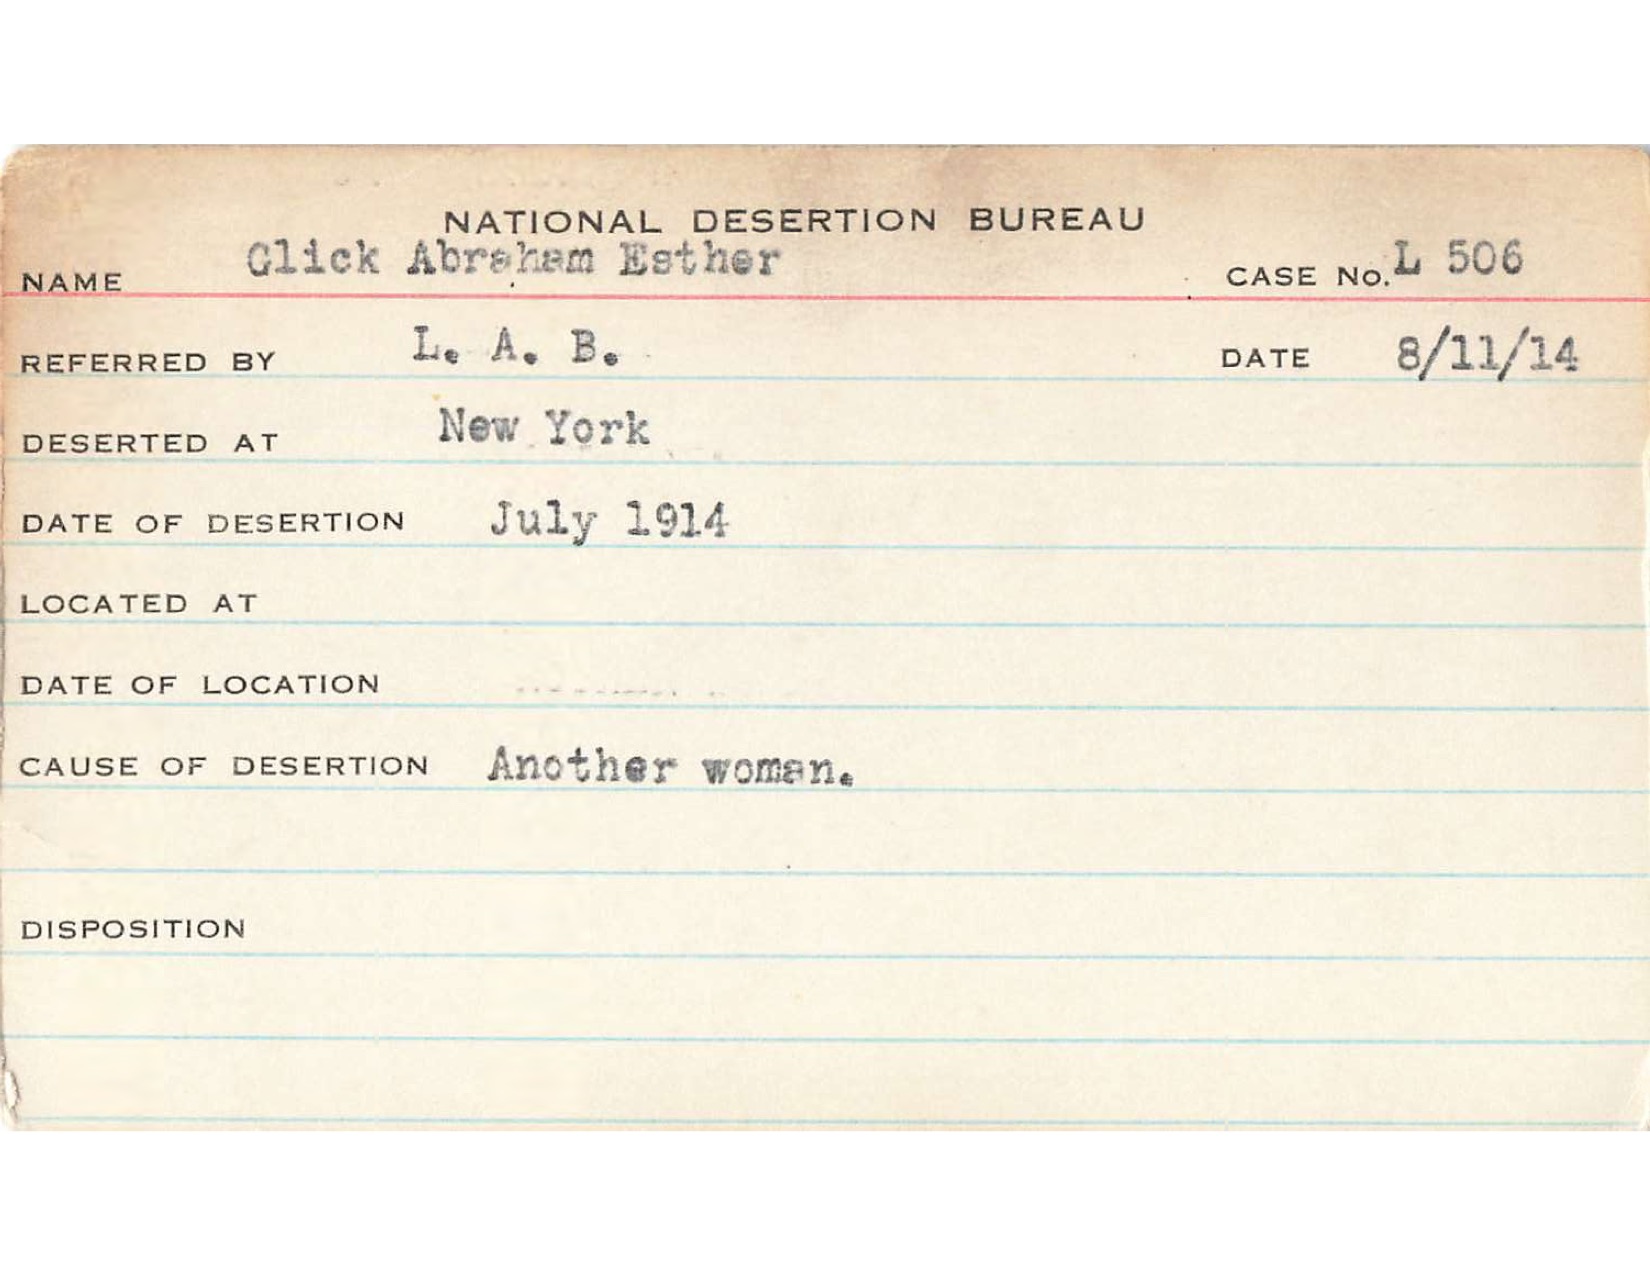 NATIONAL DESERTION BUREAU
NAME Glick Abraham Esther CASE No. L 506
REFERRED BY L. A. B. DATE 8/11/14
DESERTED AT New York
DATE OF DESERTION July 1914
LOCATED AT
DATE OF LOCATION
CAUSE OF DESERTION Another woman.
DISPOSITION